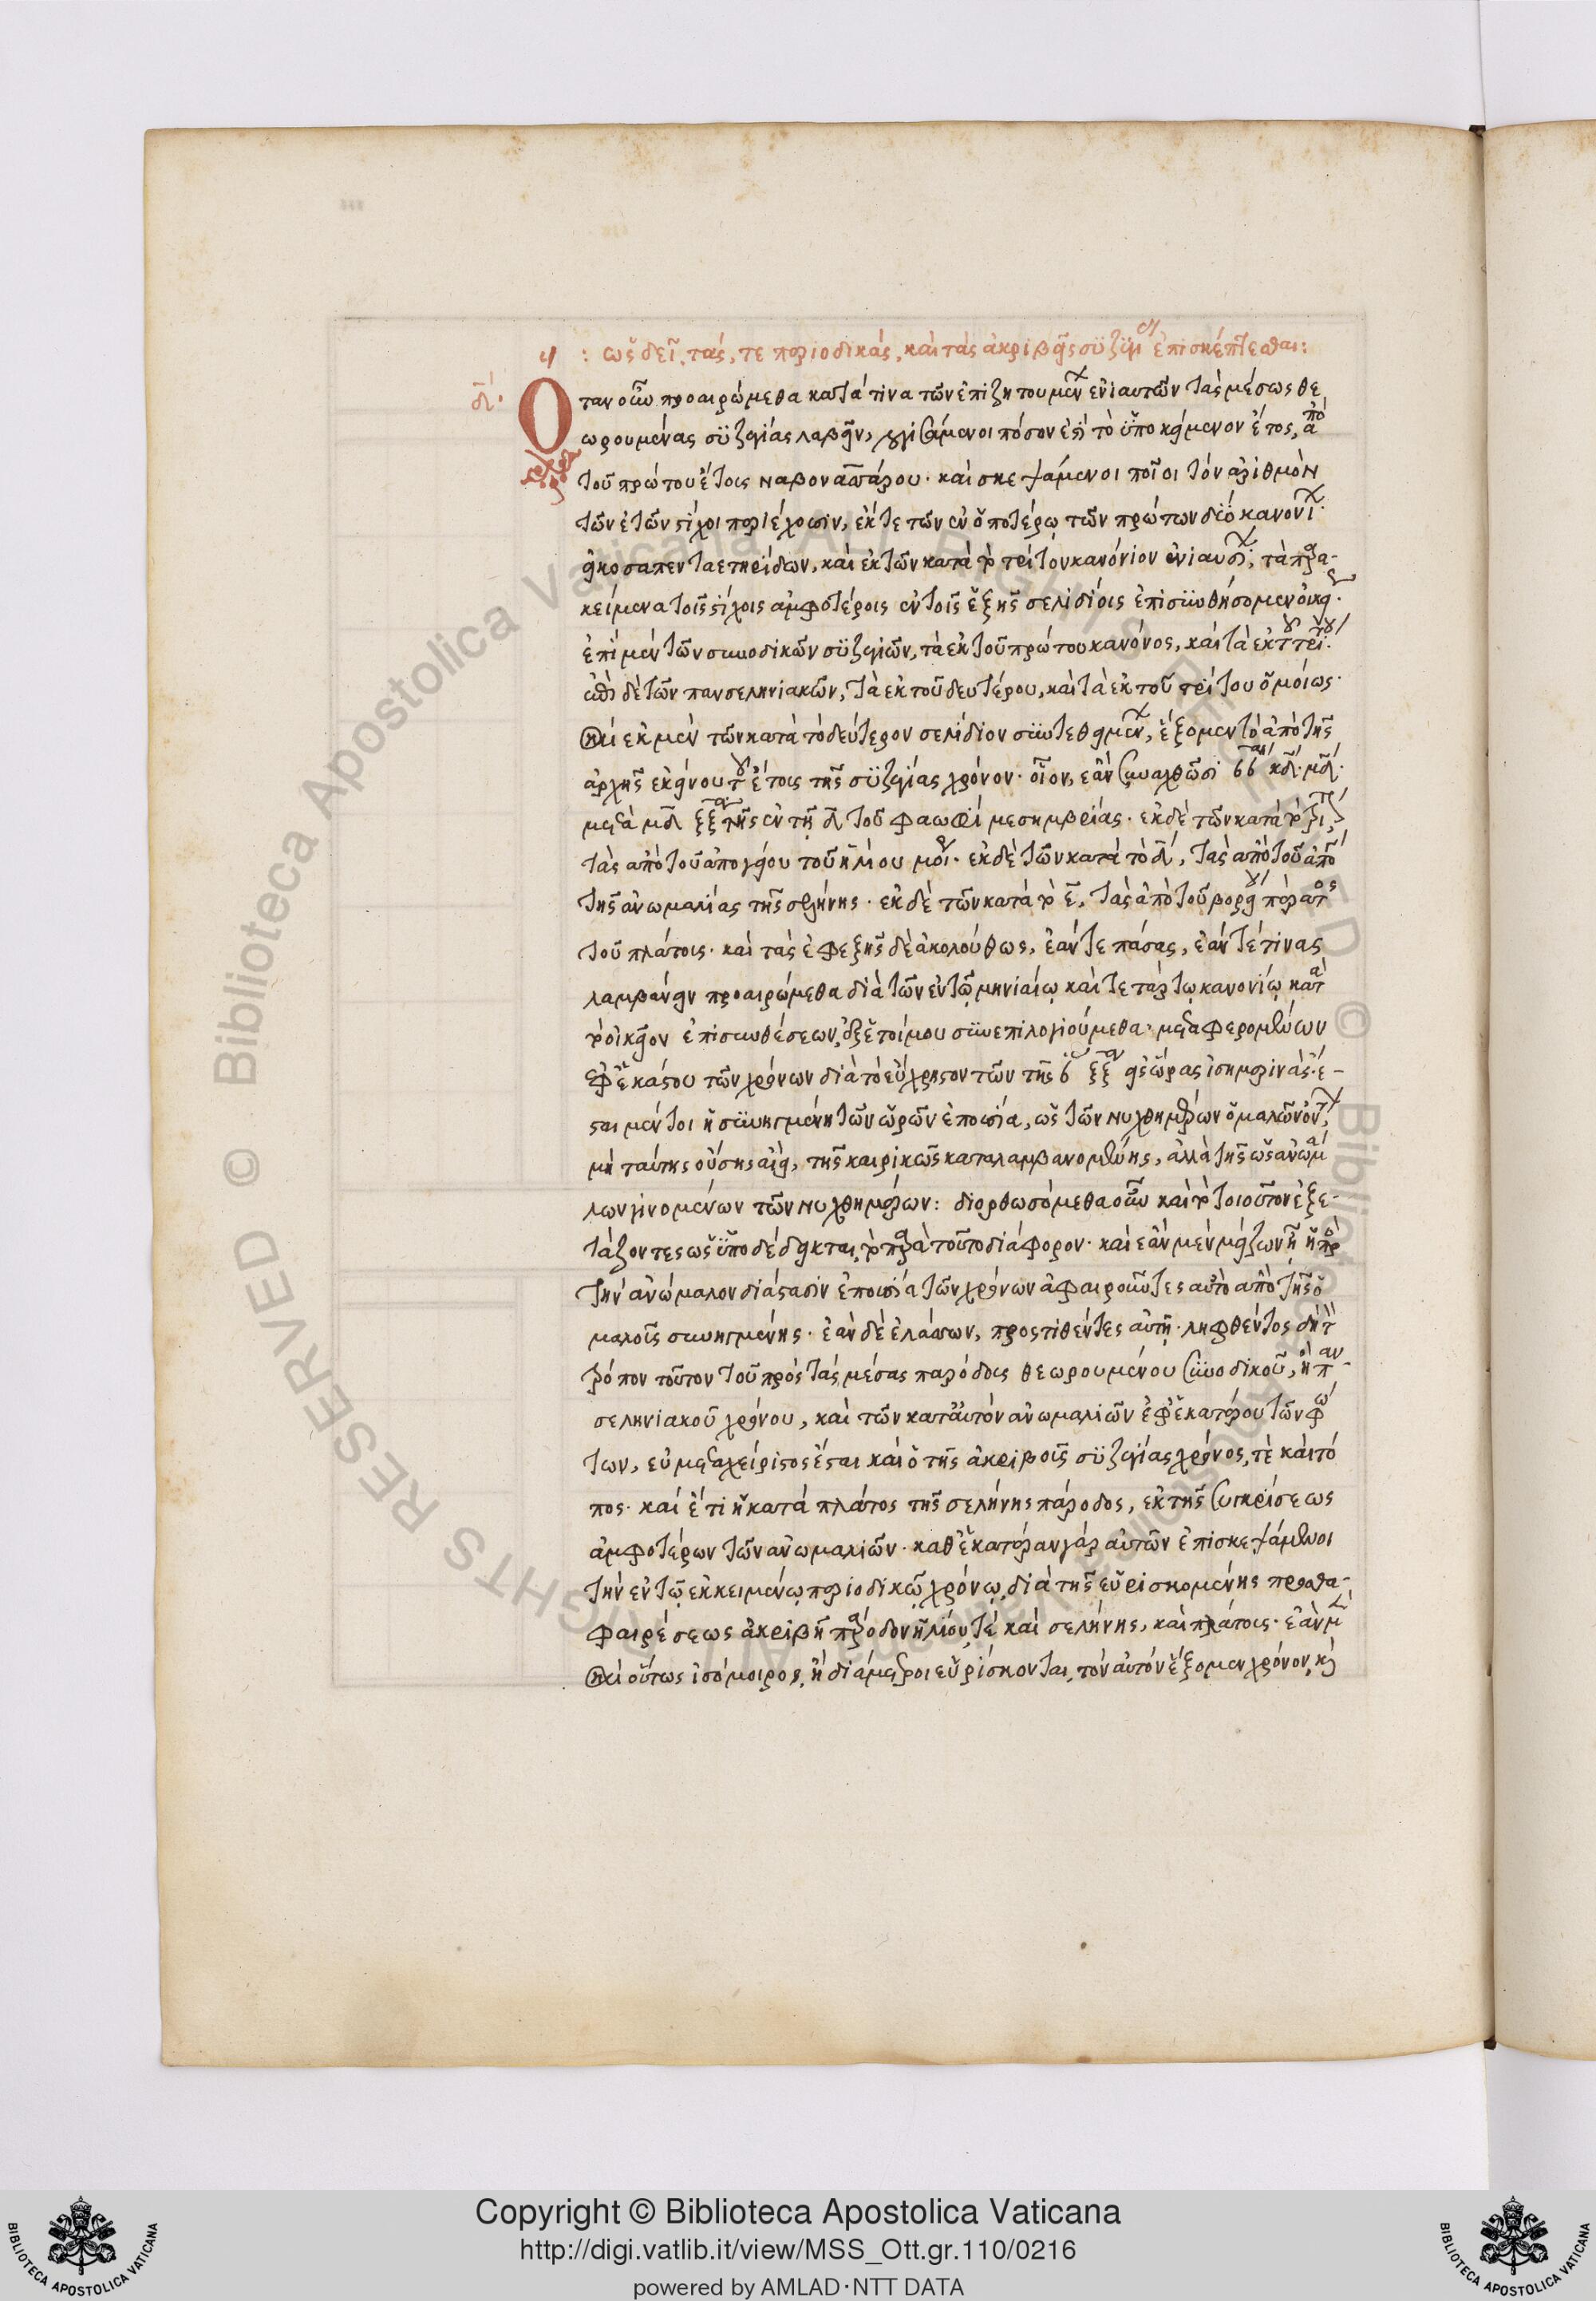 : ὡς δεῖ τάς, τε περιοδικάς, καὶ τὰς ἀκριβεῖς συζυγί ἐπισκέπτεσθαι:
δ΄.
Ὅταν οὖν προαιρώμεθα κατά τινα τῶν ἐπιζητουμένων ἐνιαυτῶν τὰς μέσως θε
ωρουμένας συζυγίας λαβεῖν, λογισάμενοι πόσον ἐστὶ τὸ ὑποκείμενον ἔτος, ἀπὸ
τοῦ πρώτου ἔτους ναβονασσάρου. καὶ σκεψάμενοι ποῖοι τὸν ἀριθμὸν
τῶν ἐτῶν στίχοι περιέχουσιν, ἔκ τε τῶν ἐν ὁποτέρῳ τῶν πρώτων δύο κανονίων
εἰκοσαπενταετηρίδων, καὶ ἐκ τῶν κατὰ τὸ τρίτον κανόνιον ἐνιαυσίων, τὰ παρα-
κείμενα τοῖς στίχοις ἀμφοτέροις ἐν τοῖς ἑξῆς σελιδίοις ἐπισυνθήσομεν οἰκεί.
ἐπὶ μὲν τῶν συνοδικῶν συζυγιῶν, τὰ ἐκ τοῦ πρώτου κανόνος, καὶ τὰ ἐκ τοῦ τρίτου
ἐπὶ δὲ τῶν πανσεληνιακῶν, τὰ ἐκ τοῦ δευτέρου, καὶ τὰ ἐκ τοῦ τρίτου ὁμοίως.
καὶ ἐκ μὲν τῶν κατὰ τὸ δεύτερον σελίδιον συντεθειμένων, ἕξομεν τὸ ἀπὸ τῆς
ἀρχῆς ἐκείνου τοῦ ἔτους τῆς συζυγίας χρόνον. οἷον, ἐὰν συναχθῶσι κδ. μδ.
μετὰ μδ ξξ τῆς ἐν τῇ δ τοῦ φαωφὶ μεσημβρίας. ἐκ δὲ τῶν κατὰ τὸ τρίτον,
τὰς ἀπὸ τοῦ ἀπογείου τοῦ ἡλίου μοί. ἐκ δὲ τῶν κατὰ τὸ δ΄, τὰς ἀπὸ τοῦ ἀπο
τῆς ἀνωμαλίας τῆς σελήνης. ἐκ δὲ τῶν κατὰ τὸ ε, τὰς ἀπὸ τοῦ βορείου πέρατος
τοῦ πλάτους. καὶ τὰς ἐφεξῆς δὲ ἀκολούθως, ἐάν τε πάσας, ἐάν τέ τινας
λαμβάνειν προαιρώμεθα διὰ τῶν ἐν τῷ μηνιαίῳ καὶ τετάρτῳ κανονίῳ κατὰ
τὸ οἰκεῖον ἐπισυνθέσεων, ἐξ ἑτοίμου συνεπιλογιούμεθα. μεταφερομένων
ἐφ' ἑκάστου τῶν χρόνων διὰ τὸ εὔχρηστον τῶν τῆς ξξ εἰς ὥρας ἰσημερινάς. ἔ-
σται μέντοι ἡ συνηγμένη τῶν ὡρῶν ἐπουσία, ὡς τῶν νυχθημέρων ὁμαλῶν ὄντων,
μὴ ταύτης οὔσης αἰεί, τῆς καιρικῶς καταλαμβανομένης, ἀλλὰ τῆς ὡς ἀνωμά
λων γινομένων τῶν νυχθημέρων: διορθωσόμεθα οὖν καὶ τὸ τοιοῦτον ἐξε-
τάζοντες ὡς ὑποδέδεικται, τὸ παρὰ τοῦτο διάφορον. καὶ ἐὰν μὲν μείζων ᾖ ἡ πρὸ
τὴν ἀνώμαλον διάστασιν ἐπουσία τῶν χρόνων ἀφαιροῦντες αὐτὸ ἀπὸ τῆς ὁ
μαλοῖς συνηγμένης. ἐὰν δὲ ἐλάσσων, προστιθέντες αὐτῇ. ληφθέντος δὴ τὸ
τρόπον τοῦτον τοῦ πρὸς τὰς μέσας παρόδους θεωρουμένου συνοδικοῦ, ἢ παν-
σεληνιακοῦ χρόνου, καὶ τῶν κατ' αὐτὸν ἀνωμαλιῶν ἐφ' ἑκατέρου τῶν φώ
των, εὐμεταχείριστος ἔσται καὶ ὁ τῆς ἀκριβοῦς συζυγίας χρόνος, τὲ καὶ τό
πος. καὶ ἔτι ἡ κατὰ πλάτος τῆς σελήνης πάροδος, ἐκ τῆς συγκρίσεως
ἀμφοτέρων τῶν ἀνωμαλιῶν. καθ' ἑκατέραν γὰρ αὐτῶν ἐπισκεψάμενοι
τὴν ἐν τῷ ἐκκειμένῳ περιοδικῷ χρόνῳ, διὰ τῆς εὑρισκομένης προσθα-
φαιρέσεως ἀκριβῆ πάροδον ἡλίου τὲ καὶ σελήνης, καὶ πλάτους. ἐὰν μὲν
καὶ οὕτως ἰσόμοιρος, ἢ διάμετροι εὑρίσκονται, τὸν αὐτὸν ἕξομεν χρόνον, καὶ
Copyright © Biblioteca Apostolica Vaticana
http://digi.vatlib.it/view/MSS_Ott.gr.110/0216
powered by AMLAD·NTT DATA